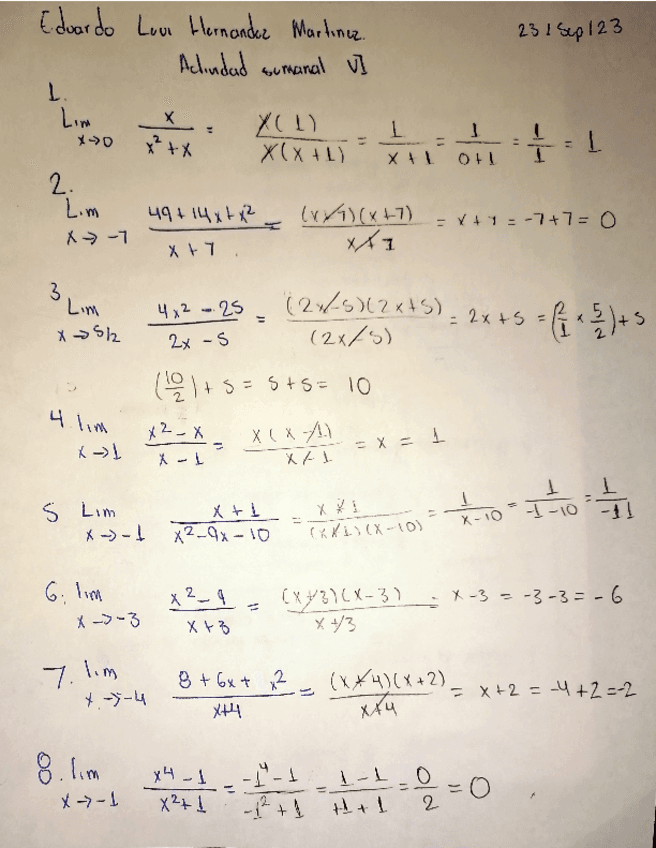 Eduardo Levi Hernandez Martinez. 23/Sep/23
Actividad semanal VI
1.
Lim x→0 x / x² + x = x(1) / x(x+1) = 1 / x+1 = 1 / 0+1 = 1/1 = 1
2.
Lim x→-7 49+14x+x² / x+7 = (x+7)(x+7) / x+7 = x+7 = -7+7 = 0
3 Lim x→5/2 4x² - 25 / 2x - 5 = (2x-5)(2x+5) / (2x-5) = 2x+5 = (2/1 × 5/2)+5
(10/2)+5 = 5+5= 10
4. lim x→1 x²-x / x-1 = x(x-1) / x-1 = x = 1
5 Lim x→-1 x+1 / x²-9x-10 = x+1 / (x+1)(x-10) = 1 / x-10 = 1 / -1-10 = 1 / -11
6. lim x→-3 x²-9 / x+3 = (x+3)(x-3) / x+3 = x-3 = -3-3 = -6
7. lim x→-4 8+6x+x² / x+4 = (x+4)(x+2) / x+4 = x+2 = -4+2=-2
8. lim x→-1 x⁴-1 / x²+1 = -1⁴-1 / -1²+1 = 1-1 / +1+1 = 0/2 = 0